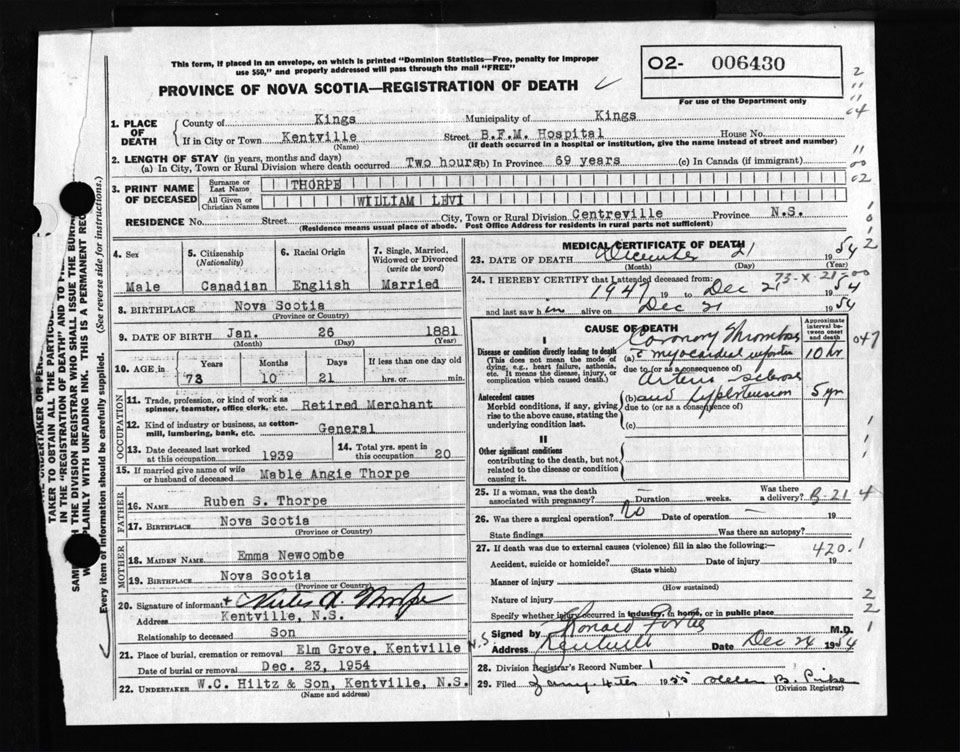 This form, if placed in an envelope, on which is printed "Dominion Statistics—Free, penalty for improper
use $50," and properly addressed will pass through the mail "FREE"
PROVINCE OF NOVA SCOTIA—REGISTRATION OF DEATH
O2- 006430
For use of the Department only
1. PLACE OF DEATH
County of Kings Municipality of Kings
If in City or Town Kentville Street B.F.M. Hospital House No.
(Name) (If death occurred in a hospital or institution, give the name instead of street and number)
2. LENGTH OF STAY (in years, months and days)
(a) In City, Town or Rural Division where death occurred Two hours (b) In Province 69 years (c) In Canada (if immigrant)
3. PRINT NAME OF DECEASED
Surname or Last Name THORPE
All Given or Christian Names WILLIAM LEVI
RESIDENCE No. Street City, Town or Rural Division Centreville Province N.S.
(Residence means usual place of abode. Post Office Address for residents in rural parts not sufficient)
4. Sex Male
5. Citizenship (Nationality) Canadian
6. Racial Origin English
7. Single, Married, Widowed or Divorced (write the word) Married
8. BIRTHPLACE Nova Scotia
(Province or Country)
9. DATE OF BIRTH Jan. 26 1881
(Month) (Day) (Year)
10. AGE in Years Months Days If less than one day old
73 10 21 hrs. or min.
OCCUPATION
11. Trade, profession, or kind of work as
spinner, teamster, office clerk, etc. Retired Merchant
12. Kind of industry or business, as cotton-
mill, lumbering, bank, etc. General
13. Date deceased last worked
at this occupation 1939
14. Total yrs. spent in
this occupation 20
15. If married give name of wife
or husband of deceased Mable Angie Thorpe
FATHER
16. NAME Ruben S. Thorpe
17. BIRTHPLACE Nova Scotia
(Province or Country)
MOTHER
18. MAIDEN NAME Emma Newcombe
19. BIRTHPLACE Nova Scotia
(Province or Country)
20. Signature of informant Thorpe
Address Kentville, N.S.
Relationship to deceased Son
21. Place of burial, cremation or removal Elm Grove, Kentville N.S.
Date of burial or removal Dec. 23, 1954
22. UNDERTAKER W.C. Hiltz & Son, Kentville, N.S.
(Name and address)
MEDICAL CERTIFICATE OF DEATH
23. DATE OF DEATH December 21 1954
(Month) (Day) (Year)
73-X-21-00
24. I HEREBY CERTIFY that I attended deceased from:
1947 19 to Dec 21 1954
and last saw him alive on Dec 21 1954
CAUSE OF DEATH
Approximate interval between onset and death
I
Disease or condition directly leading to death
(This does not mean the mode of
dying, e.g., heart failure, asthenia,
etc. It means the disease, injury, or
complication which caused death.)
Coronary Thrombosis
(a) myocardial 10 hr
due to (or as a consequence of)
Antecedent causes
Morbid conditions, if any, giving
rise to the above cause, stating the
underlying condition last.
Arterio-sclerosis
(b) and hypertension 5 yr
due to (or as a consequence of)
(c)
II
Other significant conditions
contributing to the death, but not
related to the disease or condition
causing it.
25. If a woman, was the death
associated with pregnancy? Duration weeks. Was there a delivery? B-21
26. Was there a surgical operation? No Date of operation — 19
State findings Was there an autopsy?
27. If death was due to external causes (violence) fill in also the following:—
420.1
Accident, suicide or homicide? Date of injury 19
(State which)
Manner of injury
(How sustained)
Nature of injury
Specify whether injury occurred in industry, in home, or in public place
Signed by M.D.
Address Kentville Date Dec 24 1954
28. Division Registrar's Record Number 1
29. Filed 1955
(Division Registrar)
Every item of information should be carefully supplied. (See reverse side for instructions.)